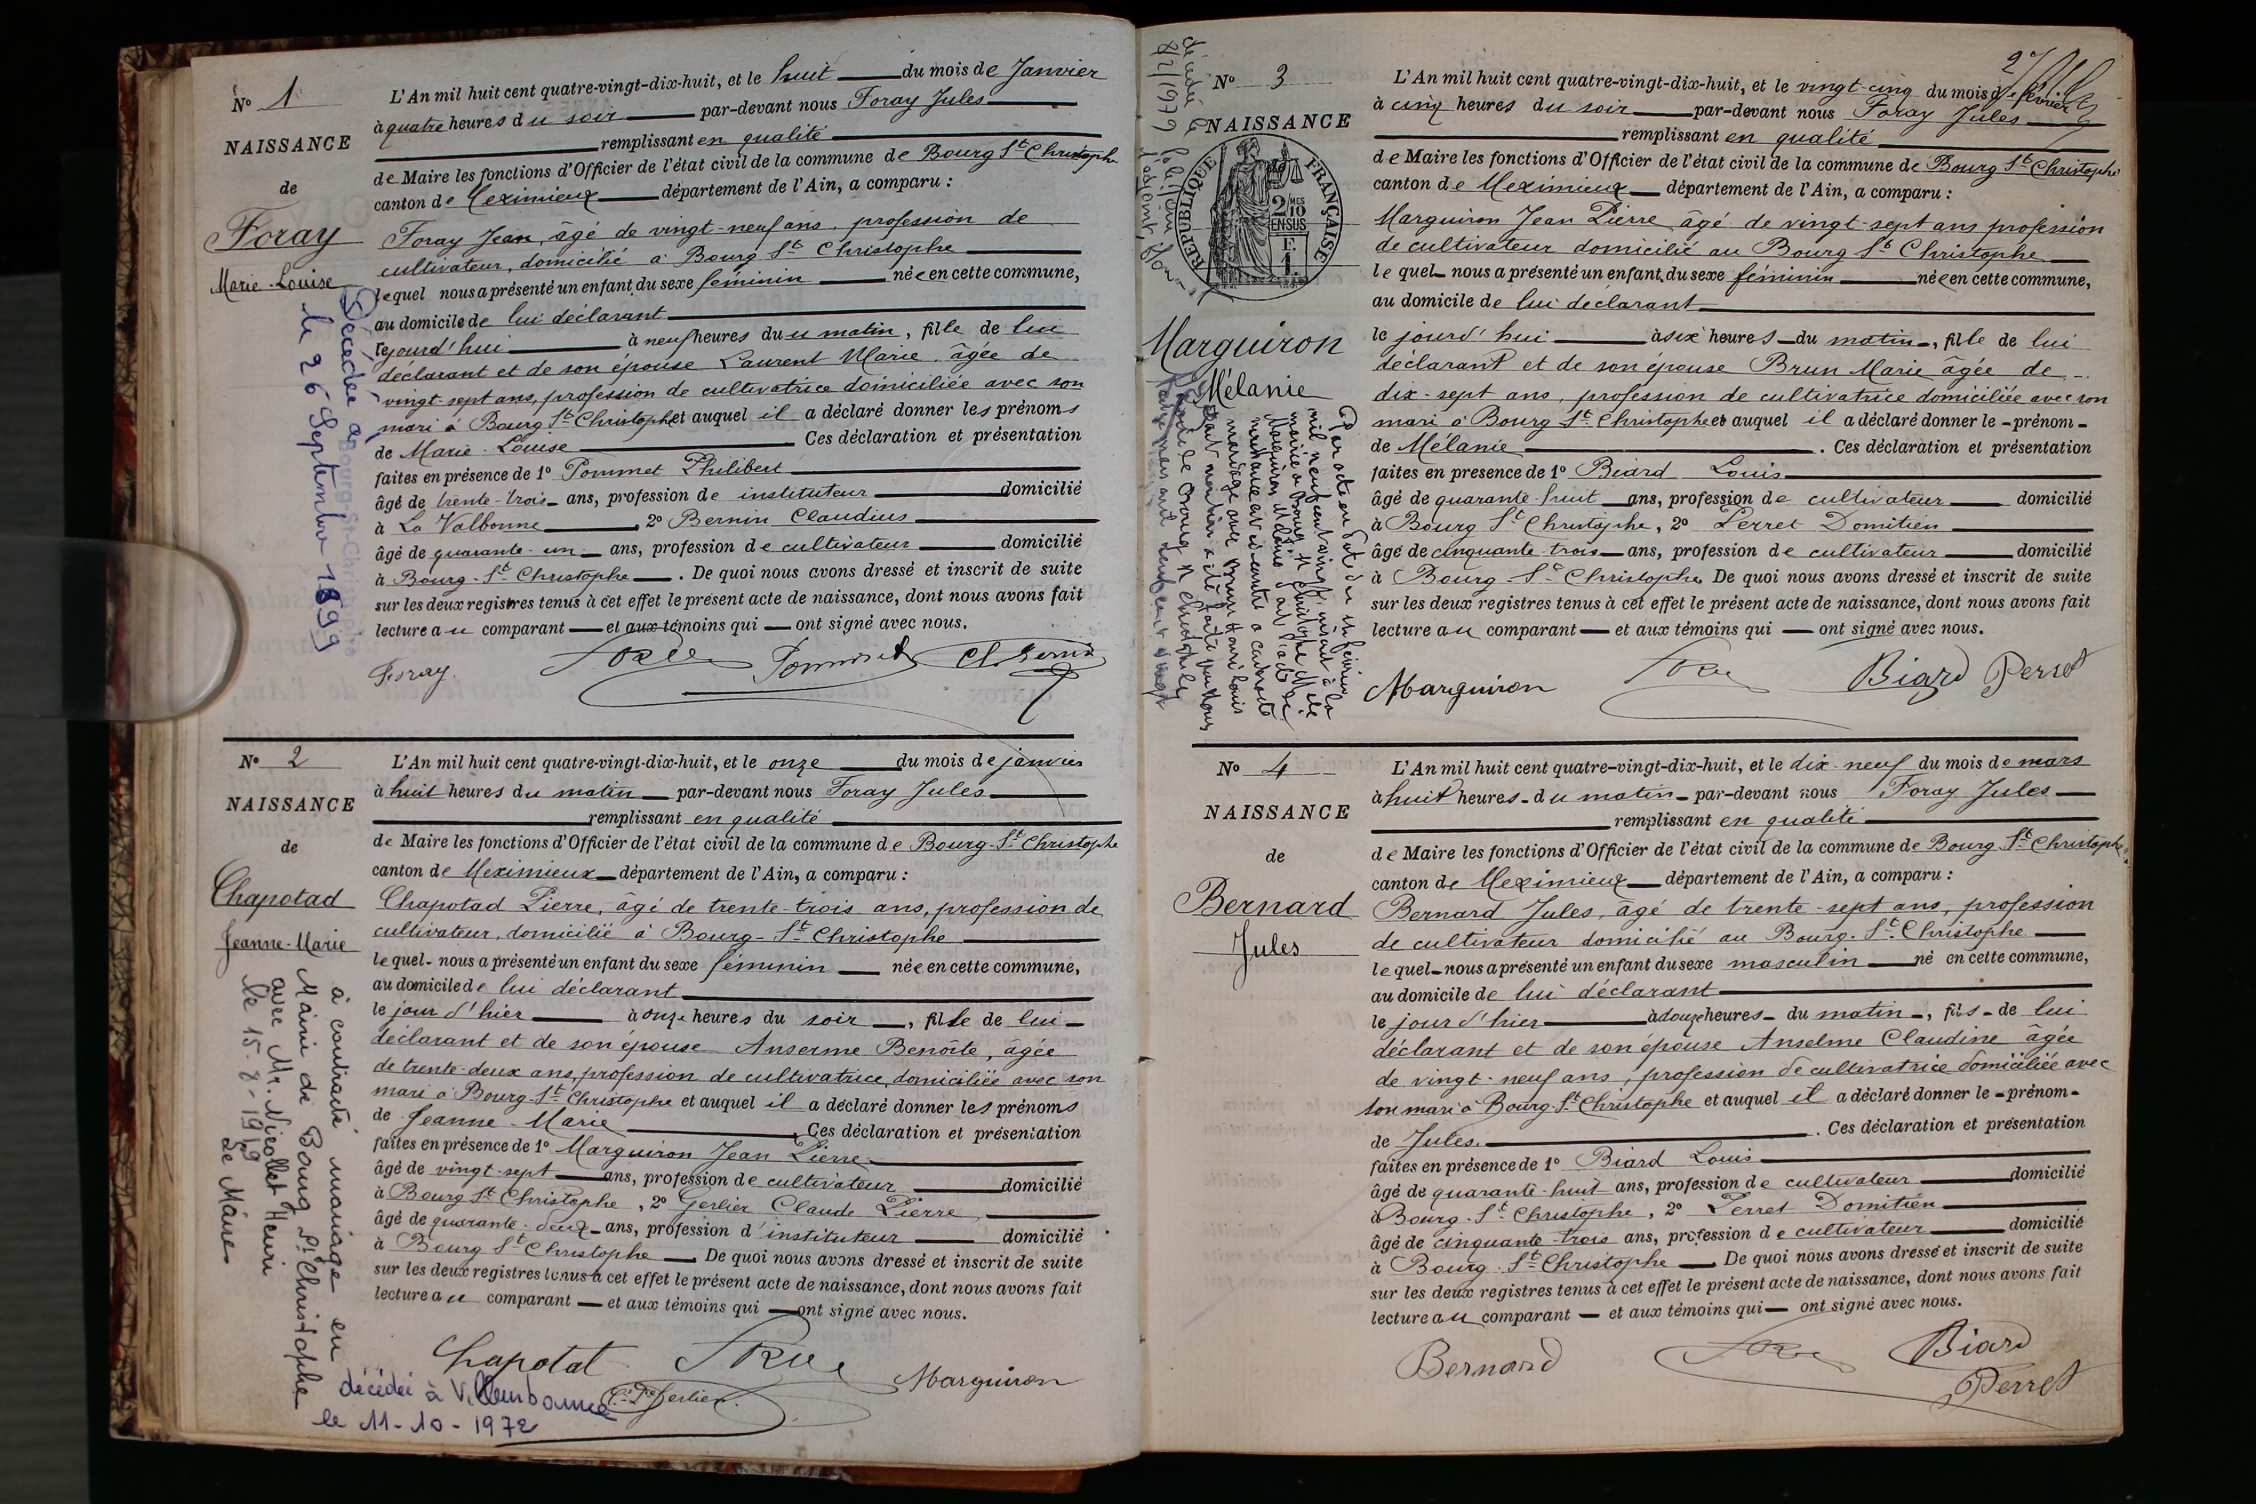 Nº 1
NAISSANCE
de
Foray
Marie-Louise
Décédée à
Bourg-St-Christophe
le 26 Septembre 1899
L'An mil huit cent quatre-vingt-dix-huit, et le huit du mois de Janvier
à quatre heures du soir par-devant nous Foray Jules
remplissant en qualité
de Maire les fonctions d'Officier de l'état civil de la commune de Bourg St Christophe
canton de Meximieux département de l'Ain, a comparu :
Foray Jean, âgé de vingt-neuf ans, profession de
cultivateur, domicilié à Bourg St Christophe
lequel nous a présenté un enfant du sexe féminin née en cette commune,
au domicile de lui déclarant
le jourd'hui à neuf heures du matin, fille de lui
déclarant et de son épouse Laurent Marie âgée de
vingt-sept ans, profession de cultivatrice domiciliée avec son
mari à Bourg St Christophe et auquel il a déclaré donner les prénoms
de Marie-Louise Ces déclaration et présentation
faites en présence de 1º Pommet Philibert
âgé de trente-trois ans, profession de instituteur domicilié
à La Valbonne, 2º Bernin Claudius
âgé de quarante-un ans, profession de cultivateur domicilié
à Bourg-St-Christophe. De quoi nous avons dressé et inscrit de suite
sur les deux registres tenus à cet effet le présent acte de naissance, dont nous avons fait
lecture au comparant et aux témoins qui ont signé avec nous.
Foray. Pommet Cl. Bernin
Nº 2
NAISSANCE
de
Chapotad
Jeanne-Marie
à contracté mariage en
Mairie de Bourg St Christophe
avec Mr. Nicollet Henri
le 15-8-1919
Le Maire
décédée à Villeurbanne
le 11-10-1972
L'An mil huit cent quatre-vingt-dix-huit, et le onze du mois de janvier
à huit heures du matin par-devant nous Foray Jules
remplissant en qualité
de Maire les fonctions d'Officier de l'état civil de la commune de Bourg-St-Christophe
canton de Meximieux département de l'Ain, a comparu :
Chapotad Pierre, âgé de trente-trois ans, profession de
cultivateur, domicilié à Bourg-St-Christophe
lequel nous a présenté un enfant du sexe féminin née en cette commune,
au domicile de lui déclarant
le jour d'hier à onze heures du soir, fille de lui
déclarant et de son épouse Anserme Benoîte, âgée
de trente-deux ans, profession de cultivatrice domiciliée avec son
mari à Bourg-St-Christophe et auquel il a déclaré donner les prénoms
de Jeanne-Marie. Ces déclaration et présentation
faites en présence de 1º Marguiron Jean Pierre
âgé de vingt-sept ans, profession de cultivateur domicilié
à Bourg St Christophe, 2º Gerlier Claude Pierre
âgé de quarante-deux ans, profession d'instituteur domicilié
à Bourg St Christophe. De quoi nous avons dressé et inscrit de suite
sur les deux registres tenus à cet effet le présent acte de naissance, dont nous avons fait
lecture au comparant et aux témoins qui ont signé avec nous.
Chapotat Marguiron
Gerlier
Nº 3
NAISSANCE
RÉPUBLIQUE FRANÇAISE
2/10MES
EN SUS
F.
1.
Marguiron
Mélanie
décédée à
8/2/1979
Par acte en date du
mil neuf cent vingt
mairie de Bourg St Christophe
Marguiron Mélanie dont l'acte de
naissance est ci-contre a contracté
mariage avec Henri Louis
L'An mil huit cent quatre-vingt-dix-huit, et le vingt-cinq du mois de février
à cinq heures du soir par-devant nous Foray Jules
remplissant en qualité
de Maire les fonctions d'Officier de l'état civil de la commune de Bourg St Christophe
canton de Meximieux département de l'Ain, a comparu :
Marguiron Jean Pierre âgé de vingt-sept ans profession
de cultivateur domicilié au Bourg St Christophe
lequel nous a présenté un enfant du sexe féminin née en cette commune,
au domicile de lui déclarant
le jourd'hui à six heures du matin, fille de lui
déclarant et de son épouse Brun Marie âgée de
dix-sept ans, profession de cultivatrice domiciliée avec son
mari à Bourg St Christophe et auquel il a déclaré donner le prénom
de Mélanie. Ces déclaration et présentation
faites en presence de 1º Biard Louis
âgé de quarante-huit ans, profession de cultivateur domicilié
à Bourg St Christophe, 2º Perret Domitien
âgé de cinquante-trois ans, profession de cultivateur domicilié
à Bourg-St-Christophe. De quoi nous avons dressé et inscrit de suite
sur les deux registres tenus à cet effet le présent acte de naissance, dont nous avons fait
lecture au comparant et aux témoins qui ont signé avec nous.
Marguiron Biard Perret
Nº 4
NAISSANCE
de
Bernard
Jules
L'An mil huit cent quatre-vingt-dix-huit, et le dix-neuf du mois de mars
à huit heures du matin par-devant nous Foray Jules
remplissant en qualité
de Maire les fonctions d'Officier de l'état civil de la commune de Bourg St Christophe
canton de Meximieux département de l'Ain, a comparu :
Bernard Jules, âgé de trente-sept ans, profession
de cultivateur domicilié au Bourg-St-Christophe
lequel nous a présenté un enfant du sexe masculin né en cette commune,
au domicile de lui déclarant
le jour d'hier à douze heures du matin, fils de lui
déclarant et de son épouse Anselme Claudine âgée
de vingt-neuf ans, profession de cultivatrice domiciliée avec
son mari à Bourg-St-Christophe et auquel il a déclaré donner le prénom
de Jules. Ces déclaration et présentation
faites en présence de 1º Biard Louis
âgé de quarante-huit ans, profession de cultivateur domicilié
à Bourg-St-Christophe, 2º Perret Domitien
âgé de cinquante-trois ans, profession de cultivateur domicilié
à Bourg-St-Christophe. De quoi nous avons dressé et inscrit de suite
sur les deux registres tenus à cet effet le présent acte de naissance, dont nous avons fait
lecture au comparant et aux témoins qui ont signé avec nous.
Bernard Biard
Perret